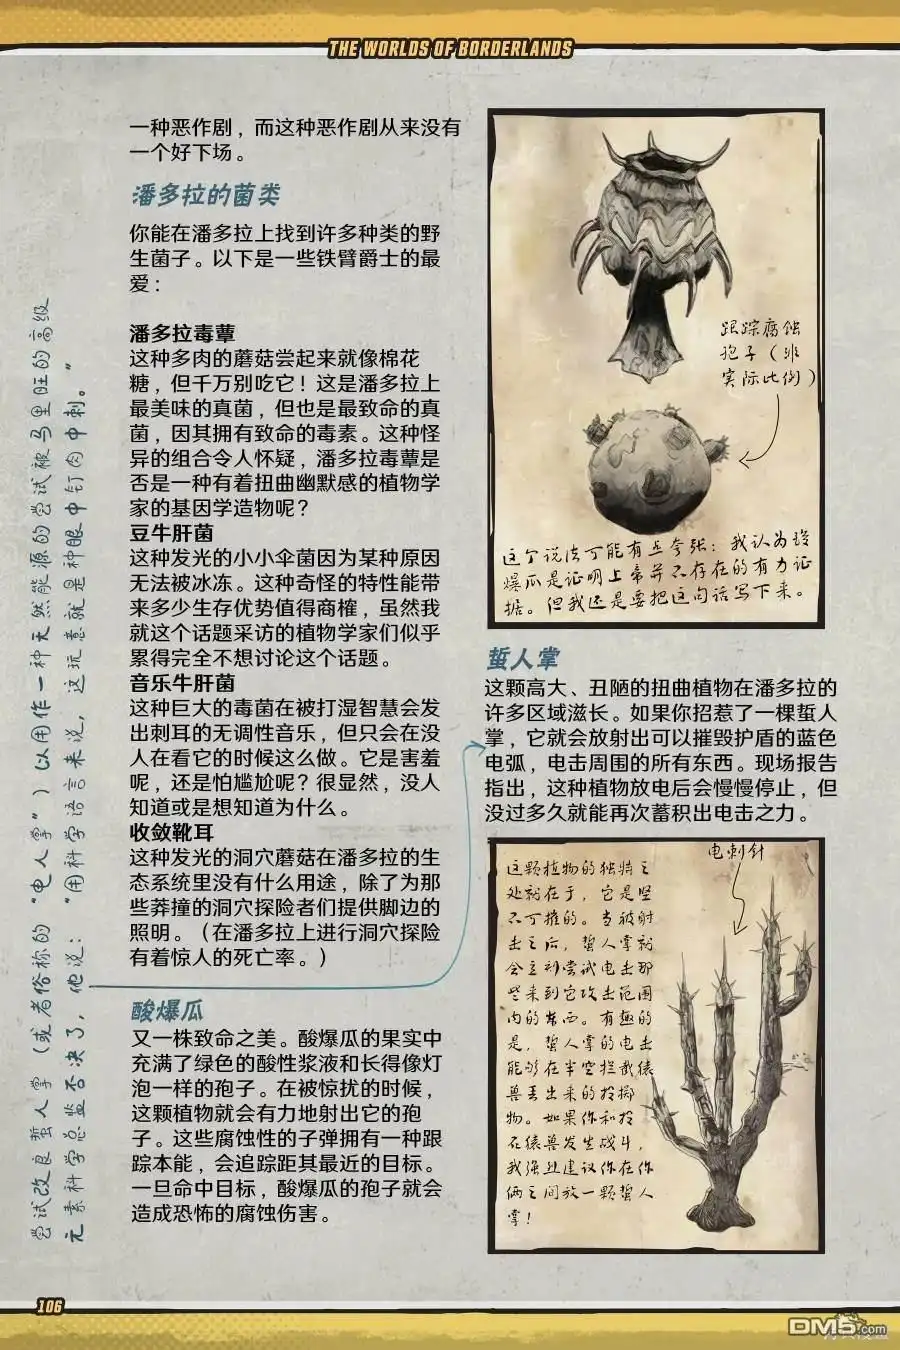 THE WORLDS OF BORDERLANDS
一种恶作剧，而这种恶作剧从来没有
一个好下场。
潘多拉的菌类
你能在潘多拉上找到许多种类的野
生菌子。以下是一些铁臂爵士的最
爱：
潘多拉毒蕈
这种多肉的蘑菇尝起来就像棉花
糖，但千万别吃它！这是潘多拉上
最美味的真菌，但也是最致命的真
菌，因其拥有致命的毒素。这种怪
异的组合令人怀疑，潘多拉毒蕈是
否是一种有着扭曲幽默感的植物学
家的基因学造物呢？
豆牛肝菌
这种发光的小小伞菌因为某种原因
无法被冰冻。这种奇怪的特性能带
来多少生存优势值得商榷，虽然我
就这个话题采访的植物学家们似乎
累得完全不想讨论这个话题。
音乐牛肝菌
这种巨大的毒菌在被打湿智慧会发
出刺耳的无调性音乐，但只会在没
人在看它的时候这么做。它是害羞
呢，还是怕尴尬呢？很显然，没人
知道或是想知道为什么。
收敛靴耳
这种发光的洞穴蘑菇在潘多拉的生
态系统里没有什么用途，除了为那
些莽撞的洞穴探险者们提供脚边的
照明。（在潘多拉上进行洞穴探险
有着惊人的死亡率。）
酸爆瓜
又一株致命之美。酸爆瓜的果实中
充满了绿色的酸性浆液和长得像灯
泡一样的孢子。在被惊扰的时候，
这颗植物就会有力地射出它的孢
子。这些腐蚀性的子弹拥有一种跟
踪本能，会追踪距其最近的目标。
一旦命中目标，酸爆瓜的孢子就会
造成恐怖的腐蚀伤害。
尝试改良蜇人掌（或者俗称的“电人掌”）以用作一种天然能源的尝试被马里旺的高级
元素科学总监否决了，他说：“用科学语言来说，这玩意就是种眼中钉肉中刺。”
跟踪腐蚀
孢子（非
实际比例）
这个说法可能有点夸张：我认为
爆瓜是证明上帝并不存在的有力证
据。但我还是要把这句话写下来。
蜇人掌
这颗高大、丑陋的扭曲植物在潘多拉的
许多区域滋长。如果你招惹了一棵蜇人
掌，它就会放射出可以摧毁护盾的蓝色
电弧，电击周围的所有东西。现场报告
指出，这种植物放电后会慢慢停止，但
没过多久就能再次蓄积出电击之力。
电刺针
这颗植物的独特之
处就在于，它是坚
不可摧的。当被射
击之后，蜇人掌就
会立刻尝试电击那
些来到它攻击范围
内的东西。有趣的
是，蜇人掌的电击
能够在半空拦截猿
兽丢出来的投掷
物。如果你和投
石猿兽发生战斗，
我强烈建议你在你
俩之间放一颗蜇人
掌！
106
DM5.com